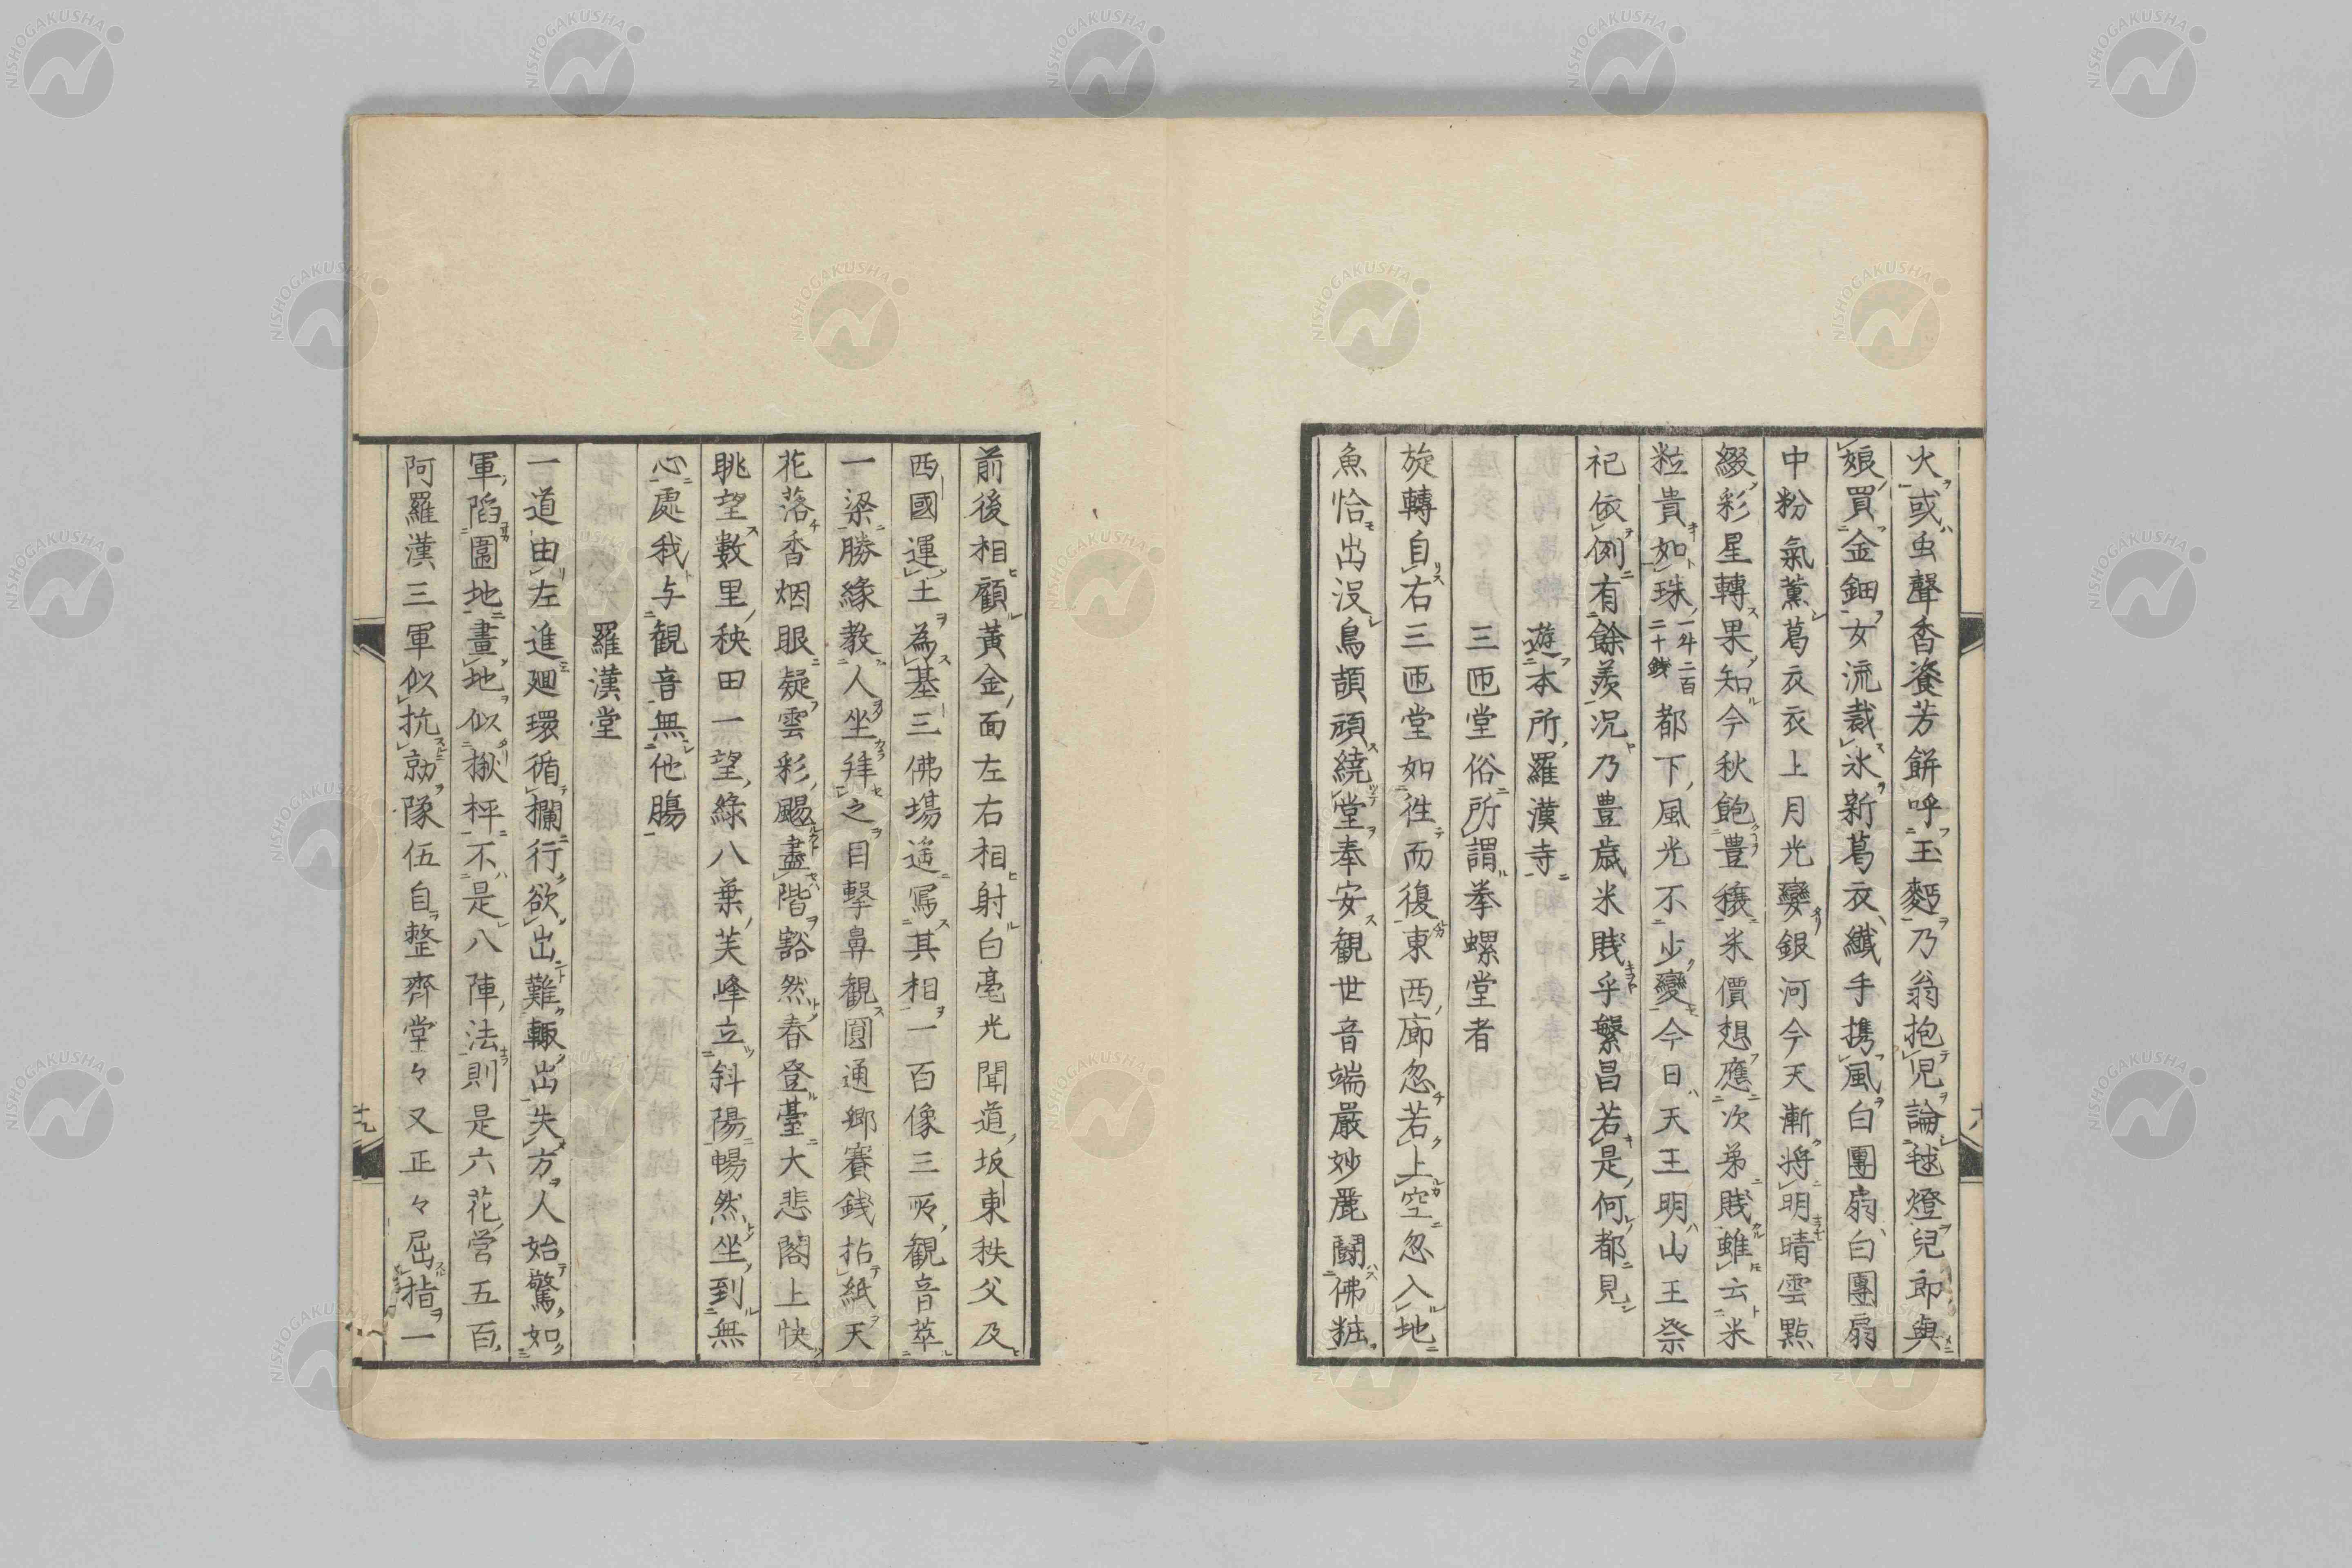 火或虫聲香瓷芳餅呼玉麪乃翁抱児論毬燈兒郎與
娘買金鈿女流裁氷新葛衣纖手携風白團扇白團扇
中粉氣薫葛衣衣上月光變銀河今天漸将明晴雲點
綴彩星轉果知今秋飽豊穣米價想應次弟賤雖云米
粒貴如珠一斗二百二十錢都下風光不少變今日天王明山王祭
祀依例有餘羨况乃豊歳米賤乎繁昌若是何都見
遊本所羅漢寺
三匝堂俗所謂拳螺堂者
旋轉自右三匝堂如徃而復東西廊忽若上空忽入地
魚恰出没鳥頡頏繞堂奉安観世音端嚴妙麗闘佛粧
前後相顧黄金面左右相射白毫光聞道坂東秩父及
西國運土為基三佛場遙寫其相一百像三所観音萃
一梁勝緣教人坐拝之目擊鼻観圓通郷賽錢拈紙天
花落香烟眼疑雲彩颺盡階豁然春登臺大悲閣上快
眺望數里秧田一望綠八葉芙峰立斜陽暢然坐到無
心處我与観音無他膓
羅漢堂
一道由左進廻環循欄行欲出難輙出失方人始驚如
軍陷圍地畫地似揪枰不是八陣法則是六花営五百
阿羅漢三軍似抗勍隊伍自整齊堂々又正々屈指一
十九